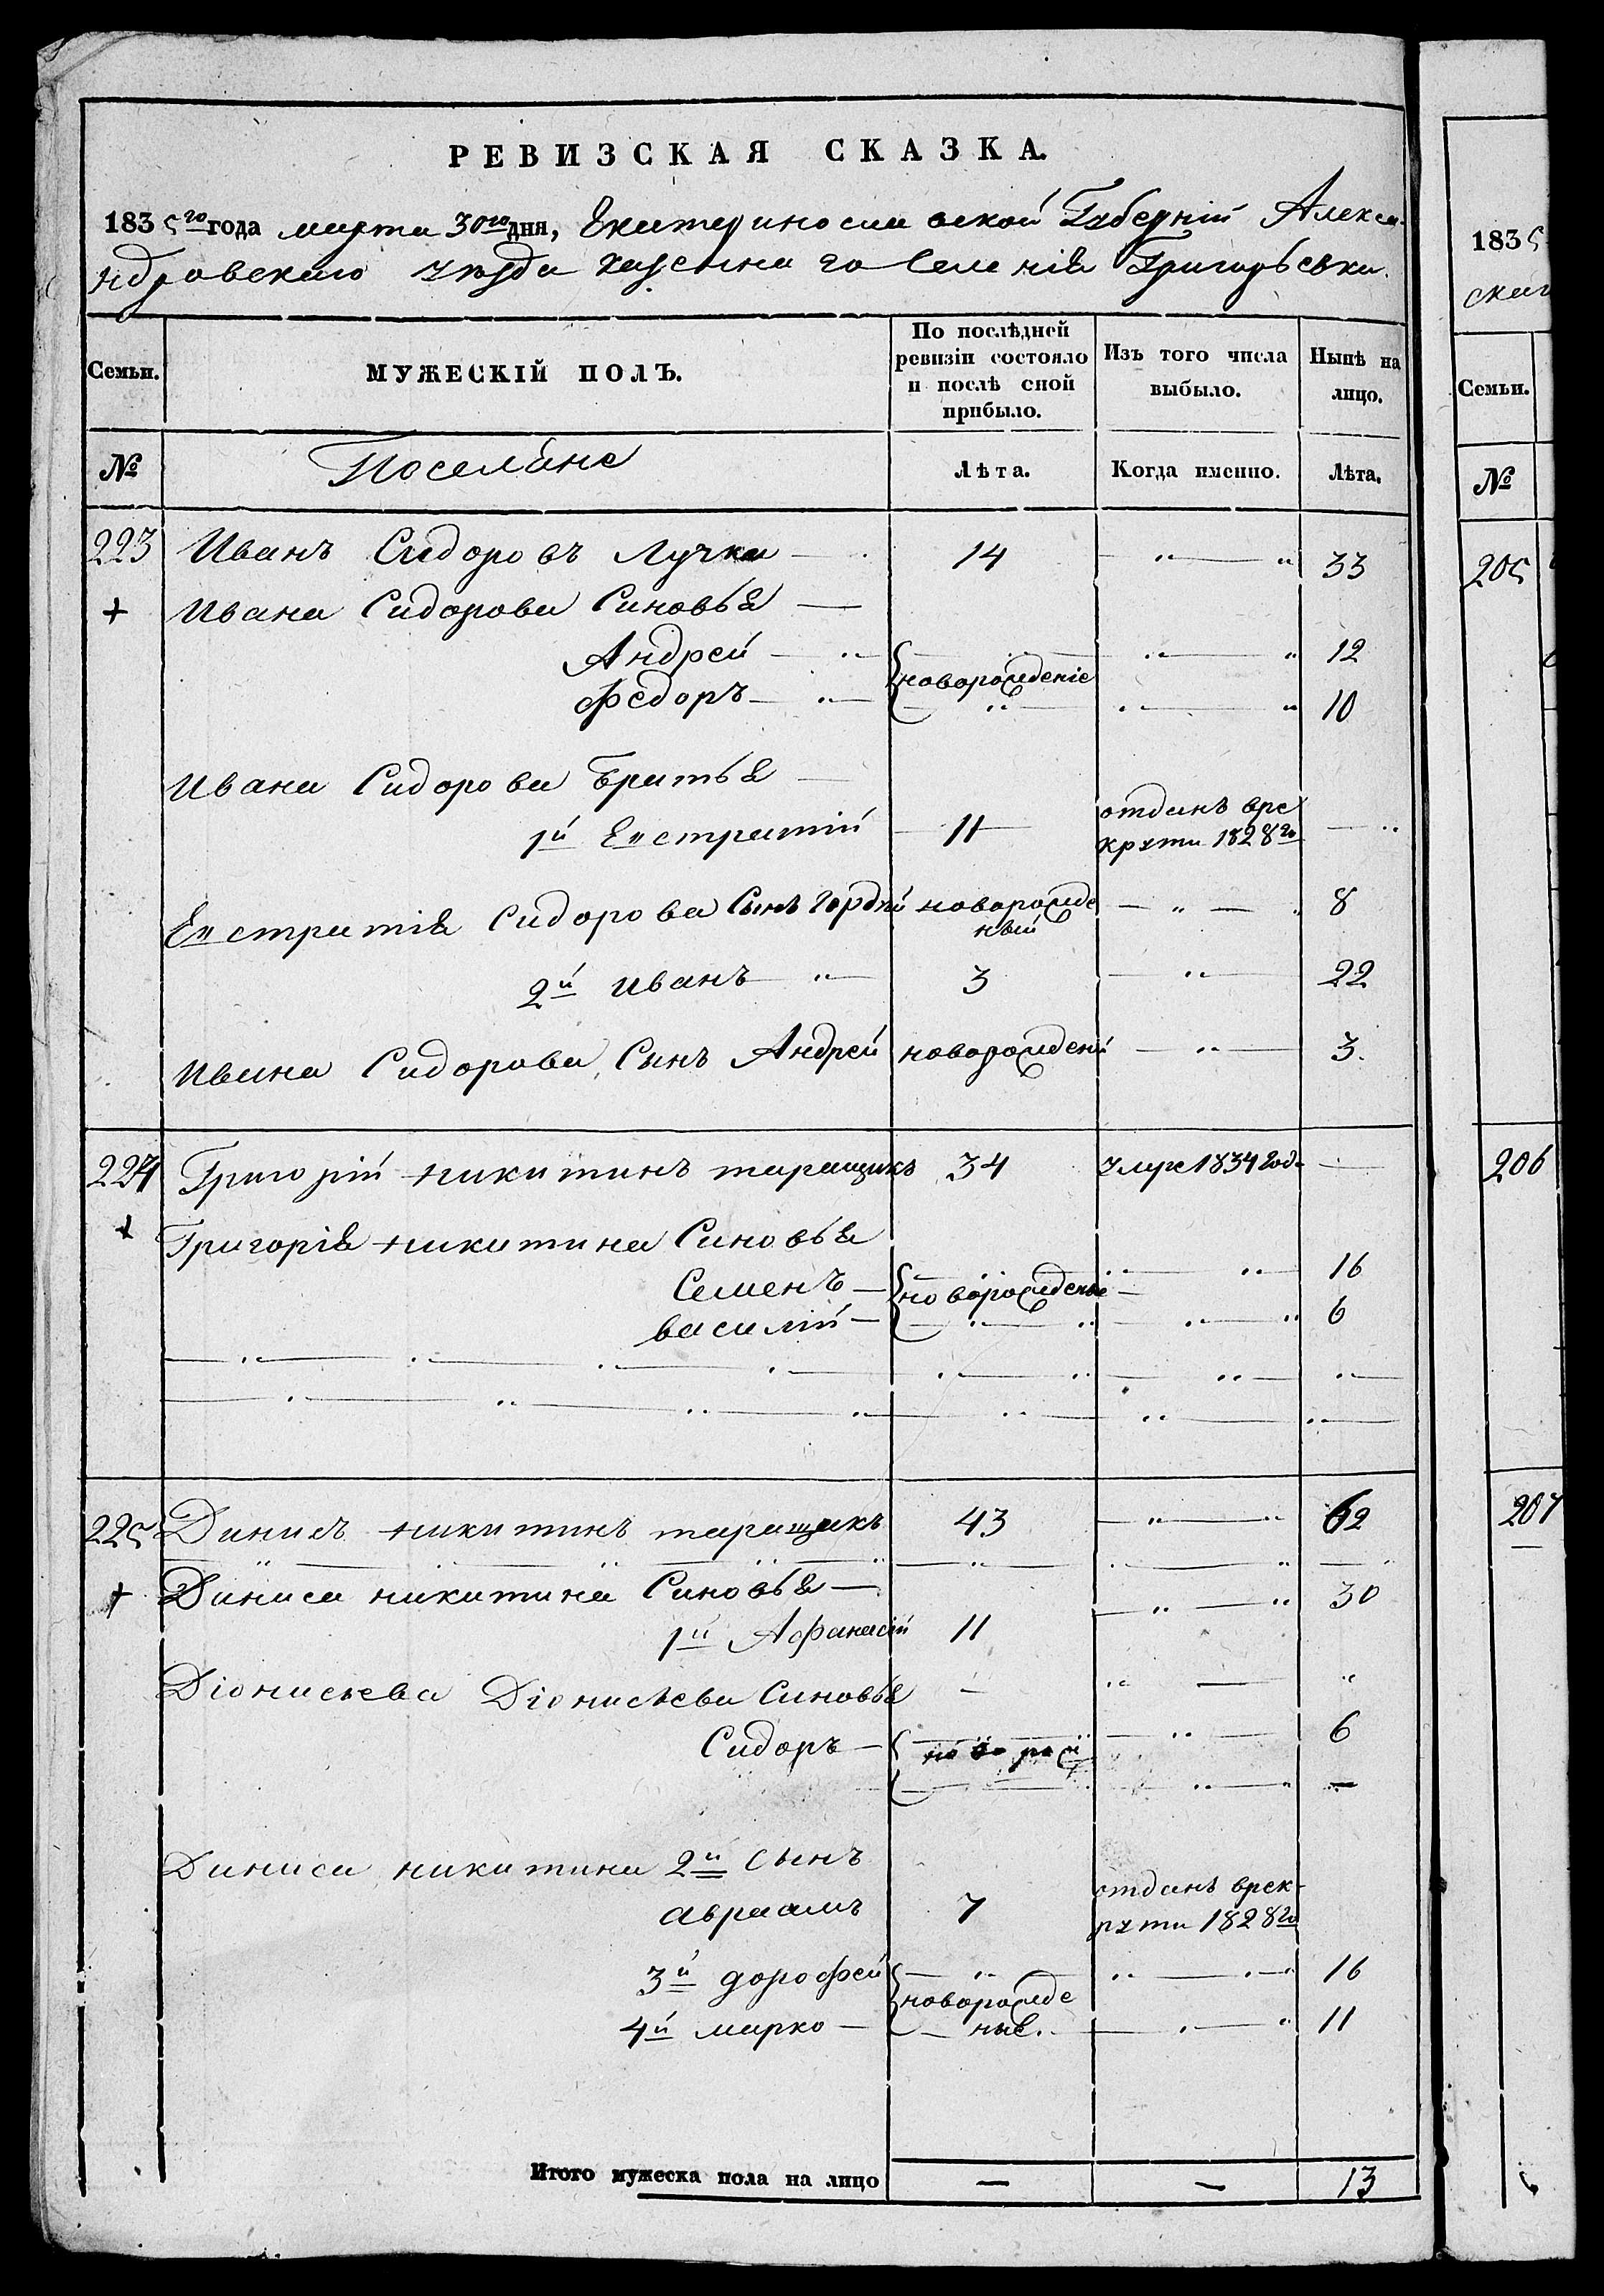 РЕВИЗСКАЯ СКАЗКА.
1835го года марта 30го дня, Екатериносла вской Губерній Алекса-
ндровскаго уѣзда казенна го Селенія Григорьевки.
Семьи. МУЖЕСКІЙ ПОЛЪ. По послѣдней ревизіи состояло и послѣ оной прибыло. Изъ того числа выбыло. Нынѣ на лицо.
№ Поселяне Лѣта. Когда именно. Лѣта.
223 Иванъ Сидоровъ Лучка 14 — „ — „ 33
+ Ивана Сидорова Синовья
Андрей — „ — „ — „ 12
новорожденіе
Федоръ — „ — „ — „ 10
Ивана Сидорова Братья
1й Евстратій 11 отданъ вре
крути 1828го — „
Евстратія Сидорова Сынъ Гордѣй новорожде
ный — „ — „ 8
2й иванъ — „ 3 — „ — 22
Ивана Сидорова Сынъ Андрей новорождений — „ — 3.
224 Григорій никитинъ таращикъ 34 умре 1834 год. —
+ Григорія никитина Синовья
Семенъ — „ — „ 16
новорожденые
василій — „ — „ 6
225 Данилъ никитинъ таращикъ 43 — „ — „ 62
+ Даниса никитина Синовья — „ — „ 30
1й Афанасій 11
Діонисьева Діонисьева Синовья — „ — „
Сидоръ — новорож — „ — 6
— „ — „ —
Даниса никитина 2й сынъ
авраамъ 7 отданъ врек-
рути 1828го
3й дорофей — „ — „ — „ 16
новорожде
4й марко — ные. — „ — „ 11
Итого мужеска пола на лицо — — 13
1835
скаг
Семьи.
№
205
206
207